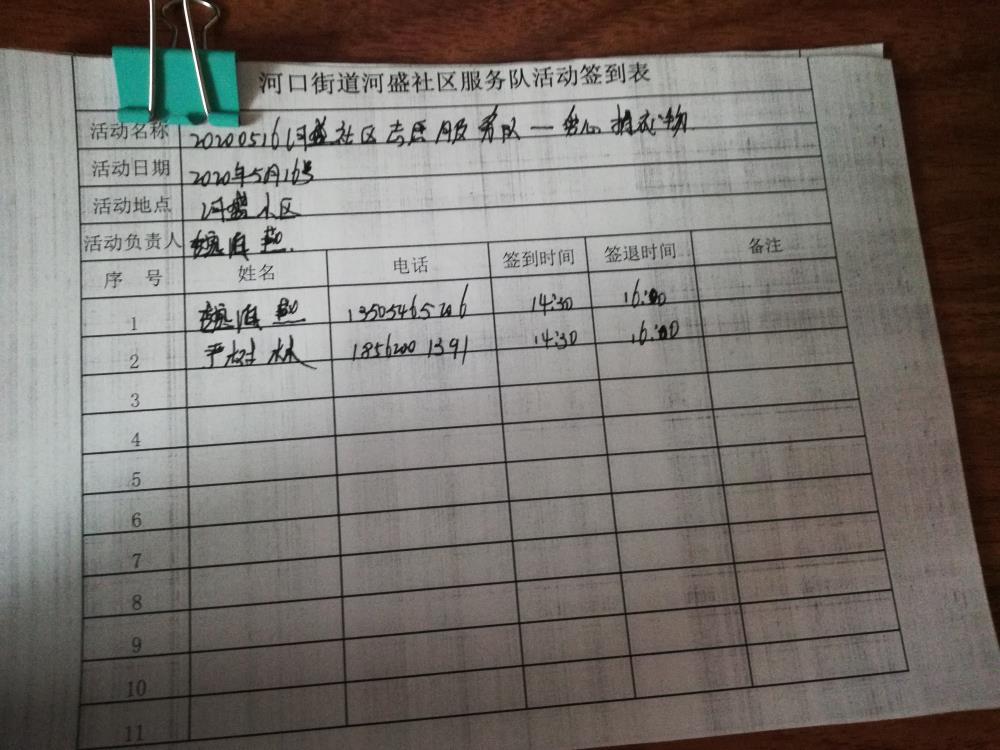 河口街道河盛社区服务队活动签到表
活动名称 20200516河盛社区志愿服务队一爱心捐衣物
活动日期 2020年5月16号
活动地点 河盛小区
活动负责人
序 号 姓名 电话 签到时间 签退时间 备注
1 13505465206 14:30 16:00
2 严树林 18562001391 14:30 16:00
3
4
5
6
7
8
9
10
11